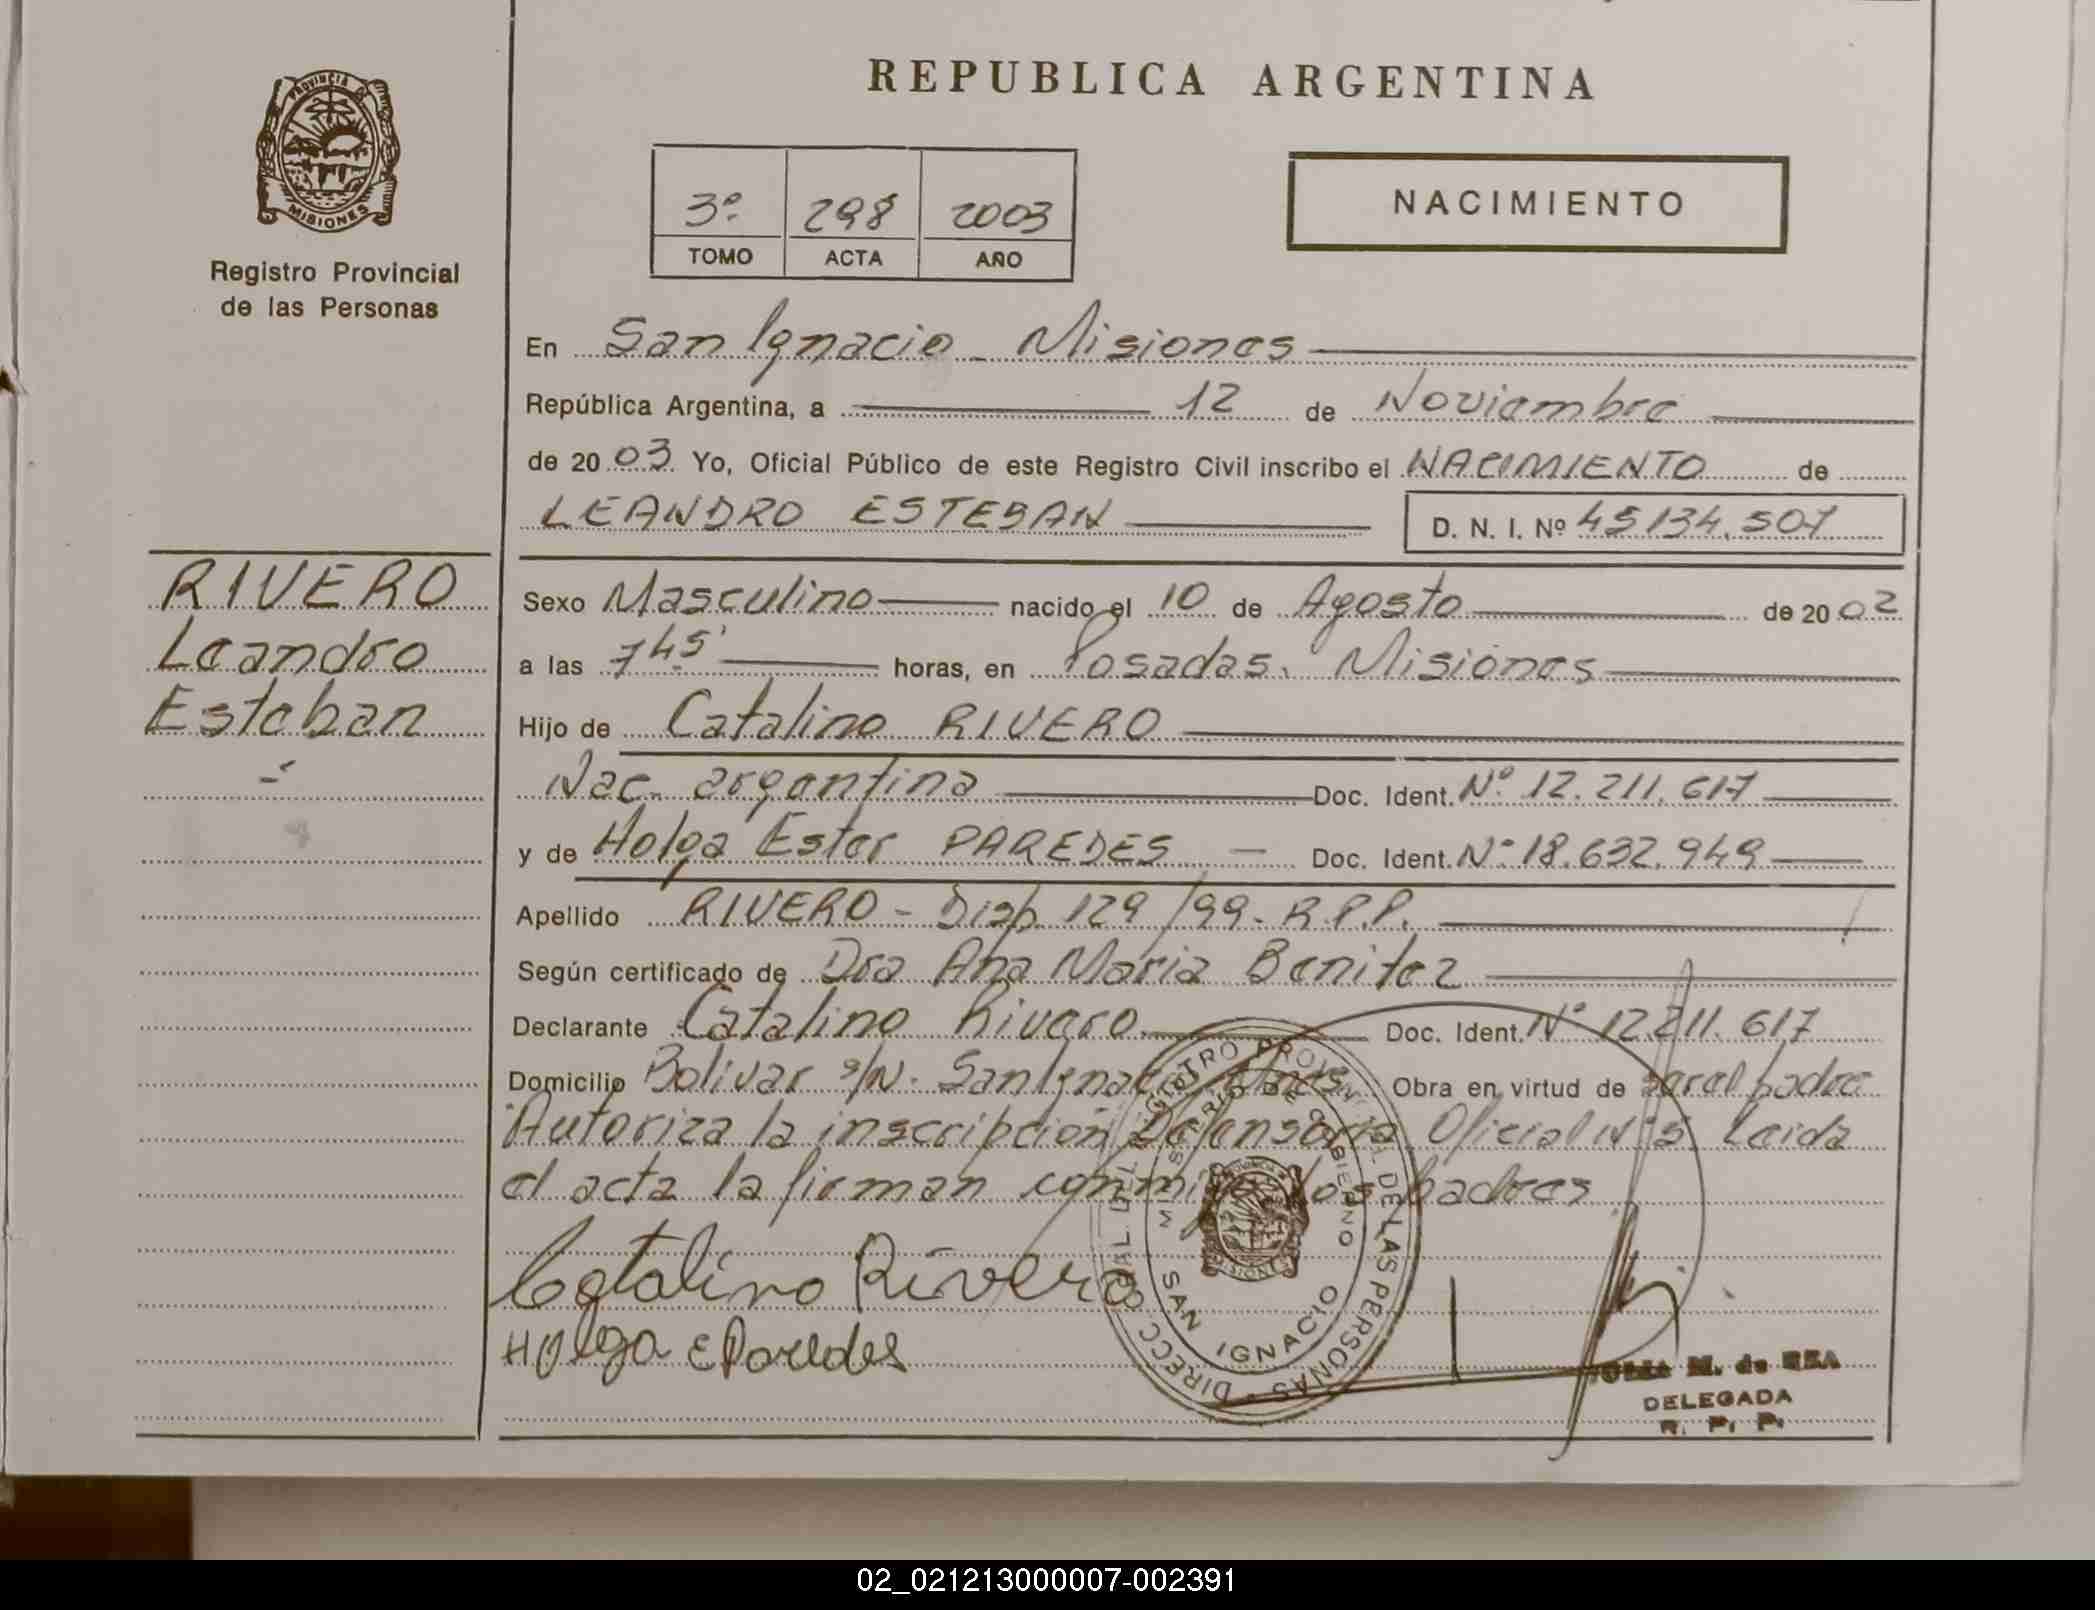 REPUBLICA ARGENTINA
PROVINCIA DE
MISIONES
Registro Provincial
de las Personas
3º 298 2003
TOMO ACTA AÑO
NACIMIENTO
En San Ignacio - Misiones
República Argentina, a 12 de Noviembre
de 2003 Yo, Oficial Público de este Registro Civil inscribo el NACIMIENTO de
LEANDRO ESTEBAN D. N. I. Nº 45134.507
RIVERO
Leandro
Esteban
Sexo Masculino nacido el 10 de Agosto de 2002
a las 7 45' horas, en Posadas. Misiones
Hijo de Catalino RIVERO
Nac. argentina Doc. Ident. Nº 12.211.617
y de Holga Ester PAREDES - Doc. Ident. Nº 18.632.949
Apellido RIVERO - Disp. 129/99 - R.P.P.
Según certificado de Dra Ana Maria Benitez
Declarante Catalino Rivero Doc. Ident. Nº 12.211.617
Domicilio Bolivar s/N. San Ignacio Obra en virtud de ser el padre
Autoriza la inscripcion Defensoria Oficial Nº 5 Leida
el acta la firman conmigo los padres
Catalino Rivero
Holga E Paredes
DIRECC. GRAL. DEL REGISTRO PROVINCIAL DE LAS PERSONAS
MINISTERIO DE GOBIERNO
SAN IGNACIO
M. de REA
DELEGADA
R. P. P.
02_021213000007-002391